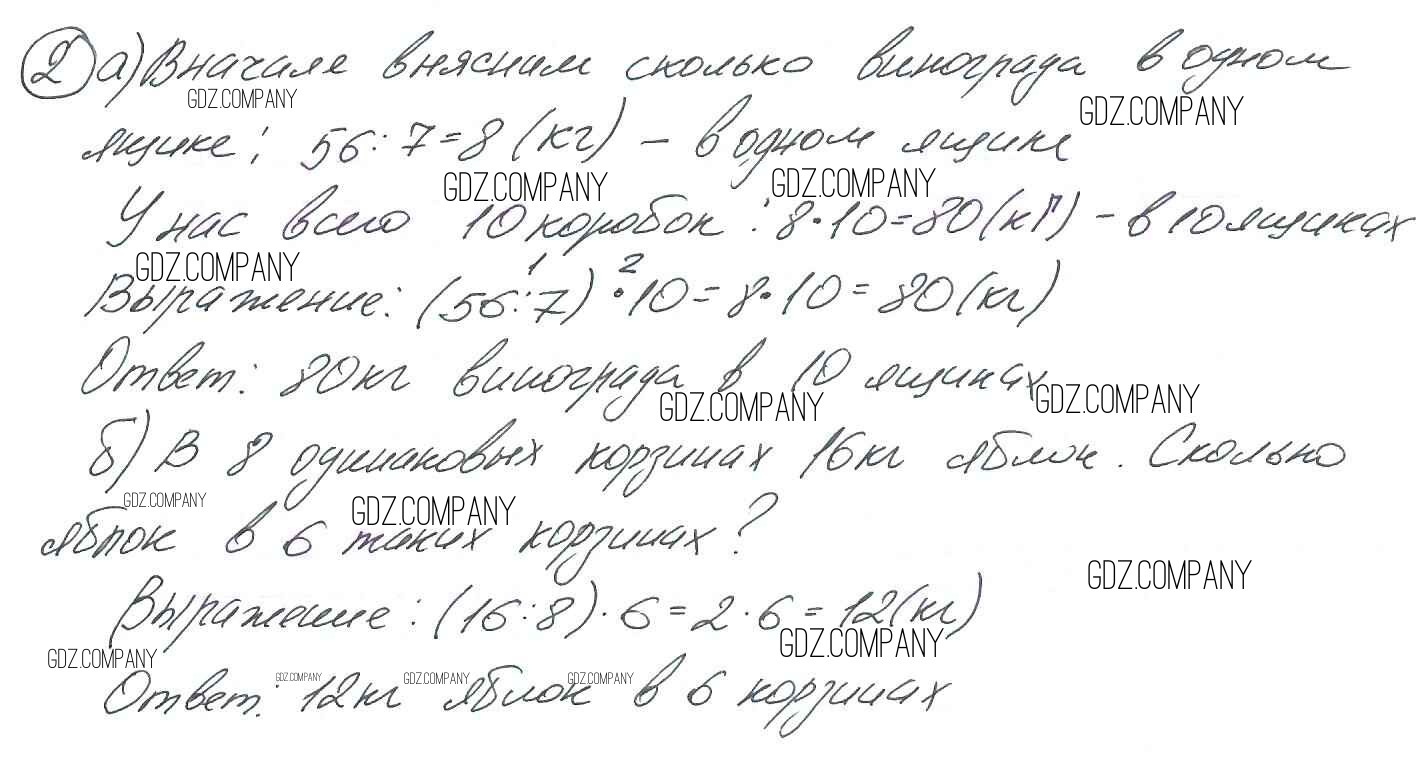 2 а) Вначале выясним сколько винограда в одном
GDZ.COMPANY GDZ.COMPANY
ящике: 56:7=8 (кг) – в одном ящике
GDZ.COMPANY GDZ.COMPANY
У нас всего 10 коробок: 8·10=80(кг) – в 10 ящиках
GDZ.COMPANY
1 2
Выражение: (56:7)·10=8·10=80(кг)
Ответ: 80кг винограда в 10 ящиках
GDZ.COMPANY GDZ.COMPANY
б) В 8 одинаковых корзинах 16кг яблок. Сколько
GDZ.COMPANY GDZ.COMPANY
яблок в 6 таких корзинах?
GDZ.COMPANY
Выражение: (16:8)·6=2·6=12(кг)
GDZ.COMPANY GDZ.COMPANY
GDZ.COMPANY GDZ.COMPANY GDZ.COMPANY
Ответ: 12кг яблок в 6 корзинах